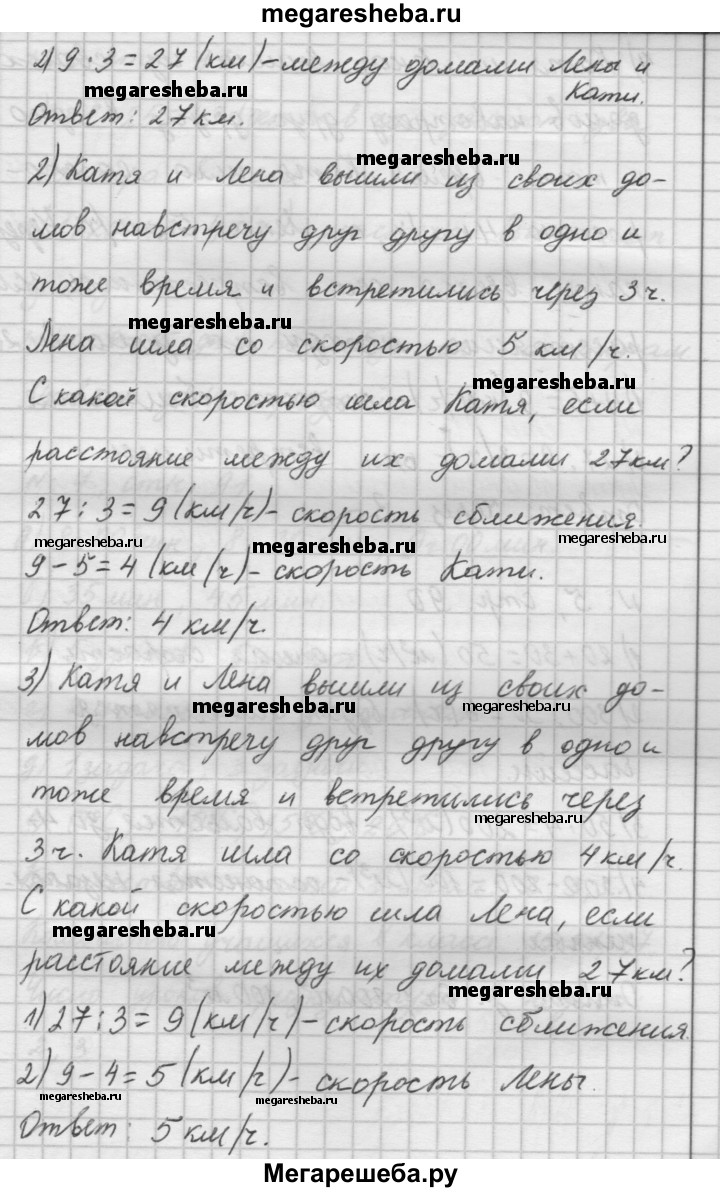 megaresheba.ru
2) 9 · 3 = 27 (км) - между домами Лены и
Кати.
megaresheba.ru
Ответ: 27 км.
megaresheba.ru
2) Катя и Лена вышли из своих до-
мов навстречу друг другу в одно и
тоже время и встретились через 3 ч.
megaresheba.ru
Лена шла со скоростью 5 км/ч.
megaresheba.ru
С какой скоростью шла Катя, если
расстояние между их домами 27 км?
27 : 3 = 9 (км/ч) - скорость сближения.
megaresheba.ru megaresheba.ru megaresheba.ru
9 - 5 = 4 (км/ч) - скорость Кати.
Ответ: 4 км/ч.
3) Катя и Лена вышли из своих до-
megaresheba.ru megaresheba.ru
мов навстречу друг другу в одно и
тоже время и встретились через
megaresheba.ru
3 ч. Катя шла со скоростью 4 км/ч.
С какой скоростью шла Лена, если
megaresheba.ru
расстояние между их домами 27 км?
megaresheba.ru
1) 27 : 3 = 9 (км/ч) - скорость сближения.
2) 9 - 4 = 5 (км/ч) - скорость Лены.
megaresheba.ru megaresheba.ru
Ответ: 5 км/ч.
Мегарешеба.ру